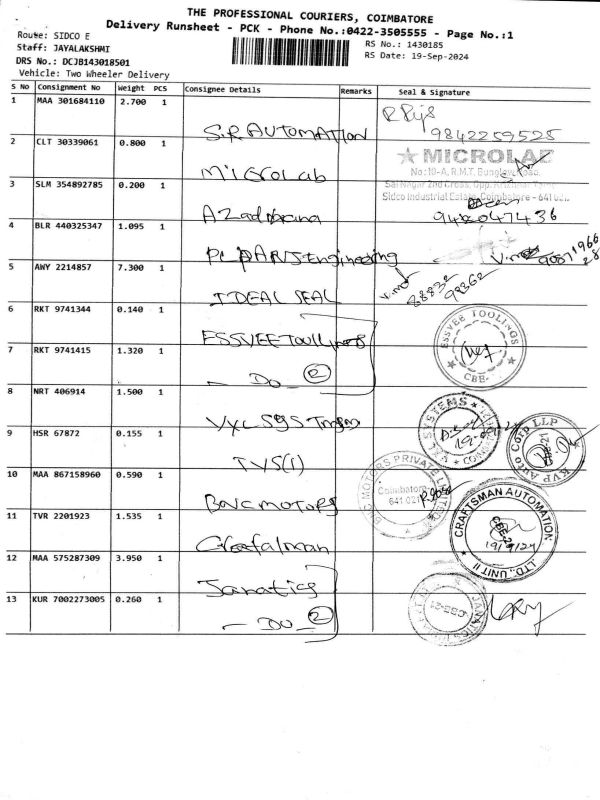 THE PROFESSIONAL COURIERS, COIMBATORE
Delivery Runsheet - PCK - Phone No.:0422-3505555 - Page No.:1
Route: SIDCO E
RS No.: 1430185
Staff: JAYALAKSHMI
RS Date: 19-Sep-2024
DRS No.: DCJB143018501
Vehicle: Two Wheeler Delivery
S No Consignment No Weight PCS Consignee Details Remarks Seal & Signature
1 MAA 301684110 2.700 1
S.R AUTOMATION 9842259525
2 CLT 30339061 0.800 1
MICROLAB
MicroLab No:10-A, R.M.T. Bunglow Road,
3 SLM 354892785 0.200 1
Sai Nagar 2nd Cross, Opp.
Sidco Industrial Estate, Coimbatore - 641 021.
4 BLR 440325347 1.095 1
Engineering
5 AWY 2214857 7.300 1
IDEAL SEAL
6 RKT 9741344 0.140 1
ESSVEE Toolings ESSVEE TOOLINGS CBE
7 RKT 9741415 1.320 1
- Do - 2
8 NRT 406914 1.500 1
SYSTEMS
9 HSR 67872 0.155 1
TVS(1) RVP Auto Corp LLP
10 MAA 867158960 0.590 1
BVC MOTORS BVC MOTORS PRIVATE LIMITED Coimbatore 641 021
11 TVR 2201923 1.535 1
CRAFTSMAN AUTOMATION LTD., UNIT II CBE-21 19/9/24
12 MAA 575287309 3.950 1
Janatics
13 KUR 7002273005 0.260 1
- Do - 2 JANATICS CBE-21